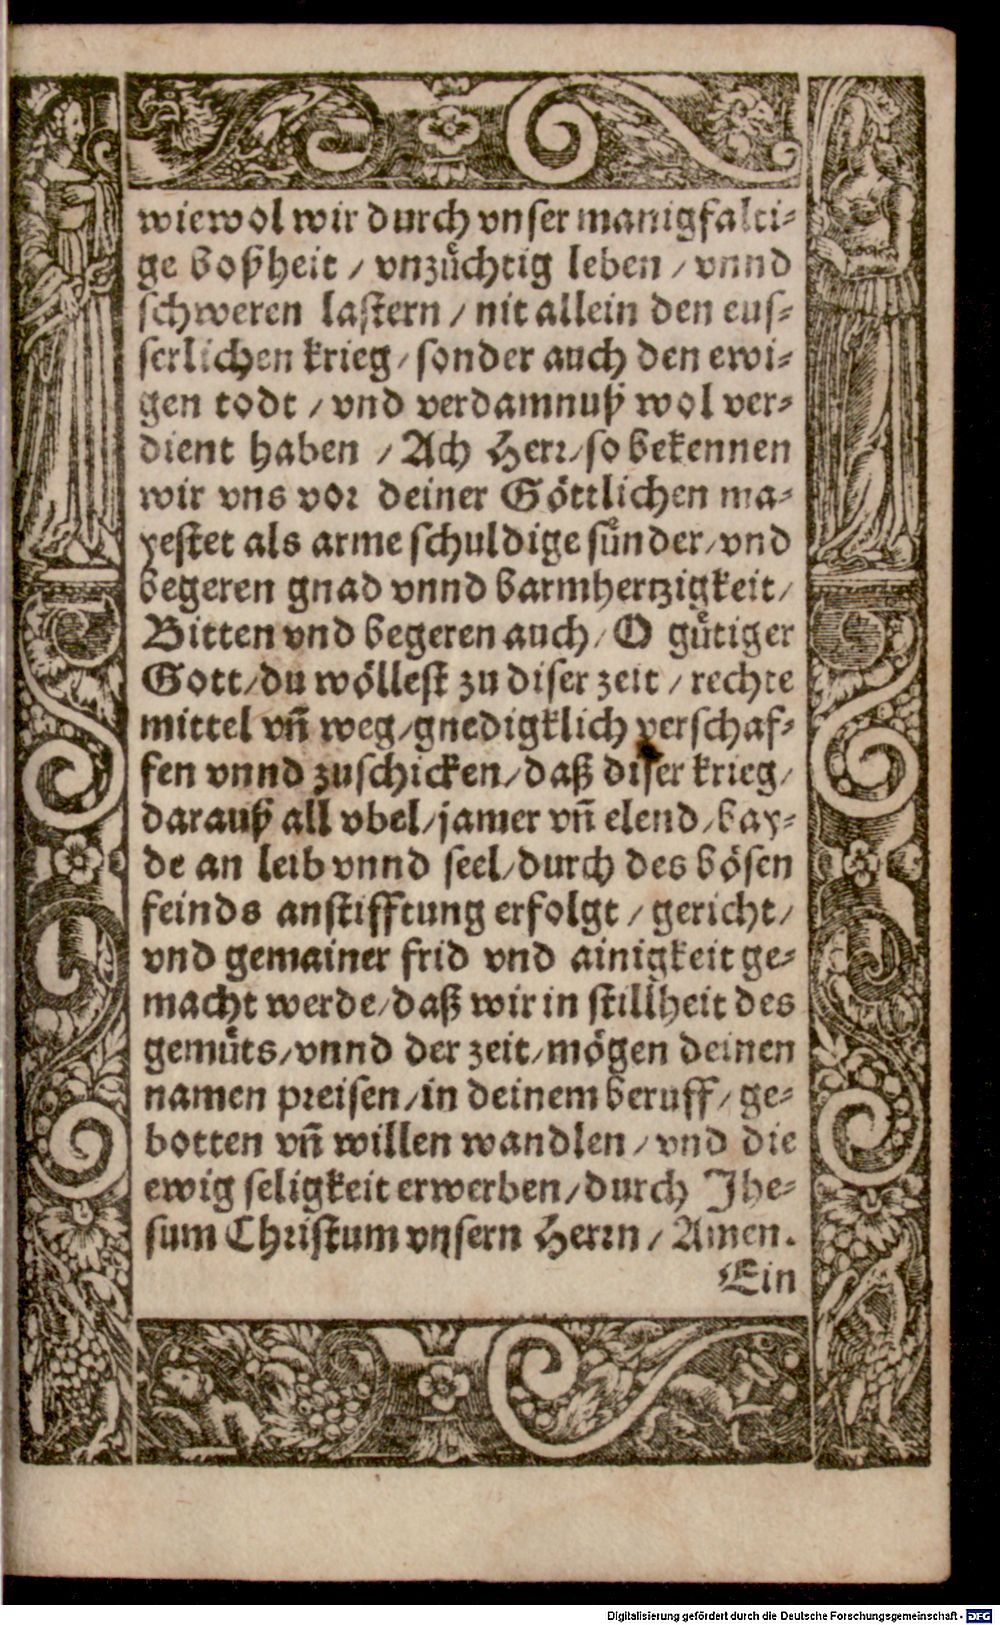 wiewol wir durch vnser manigfalti⸗
ge boßheit / vnzůchtig leben / vnnd
schweren lastern / nit allein den eus⸗
serlichen krieg / sonder auch den ewi⸗
gen todt / vnd verdamnuß wol ver⸗
dient haben / Ach Herr / so bekennen
wir vns vor deiner Göttlichen ma⸗
yestet als arme schuldige sünder / vnd
begeren gnad vnnd barmhertzigkeit /
Bitten vnd begeren auch / O gütiger
Gott / du wöllest zu diser zeit / rechte
mittel vñ weg / gnedigklich verschaf⸗
fen vnnd zuschicken / daß diser krieg /
darauß all vbel / jamer vñ elend / bay⸗
de an leib vnnd seel / durch des bösen
feinds anstifftung erfolgt / gericht /
vnd gemainer frid vnd ainigkeit ge⸗
macht werde / daß wir in stillheit des
gemüts / vnnd der zeit / mögen deinen
namen preisen / in deinem beruff / ge⸗
botten vñ willen wandlen / vnd die
ewig seligkeit erwerben / durch Jhe⸗
sum Christum vnsern Herrn / Amen.
Ein
Digitalisierung gefördert durch die Deutsche Forschungsgemeinschaft - DFG